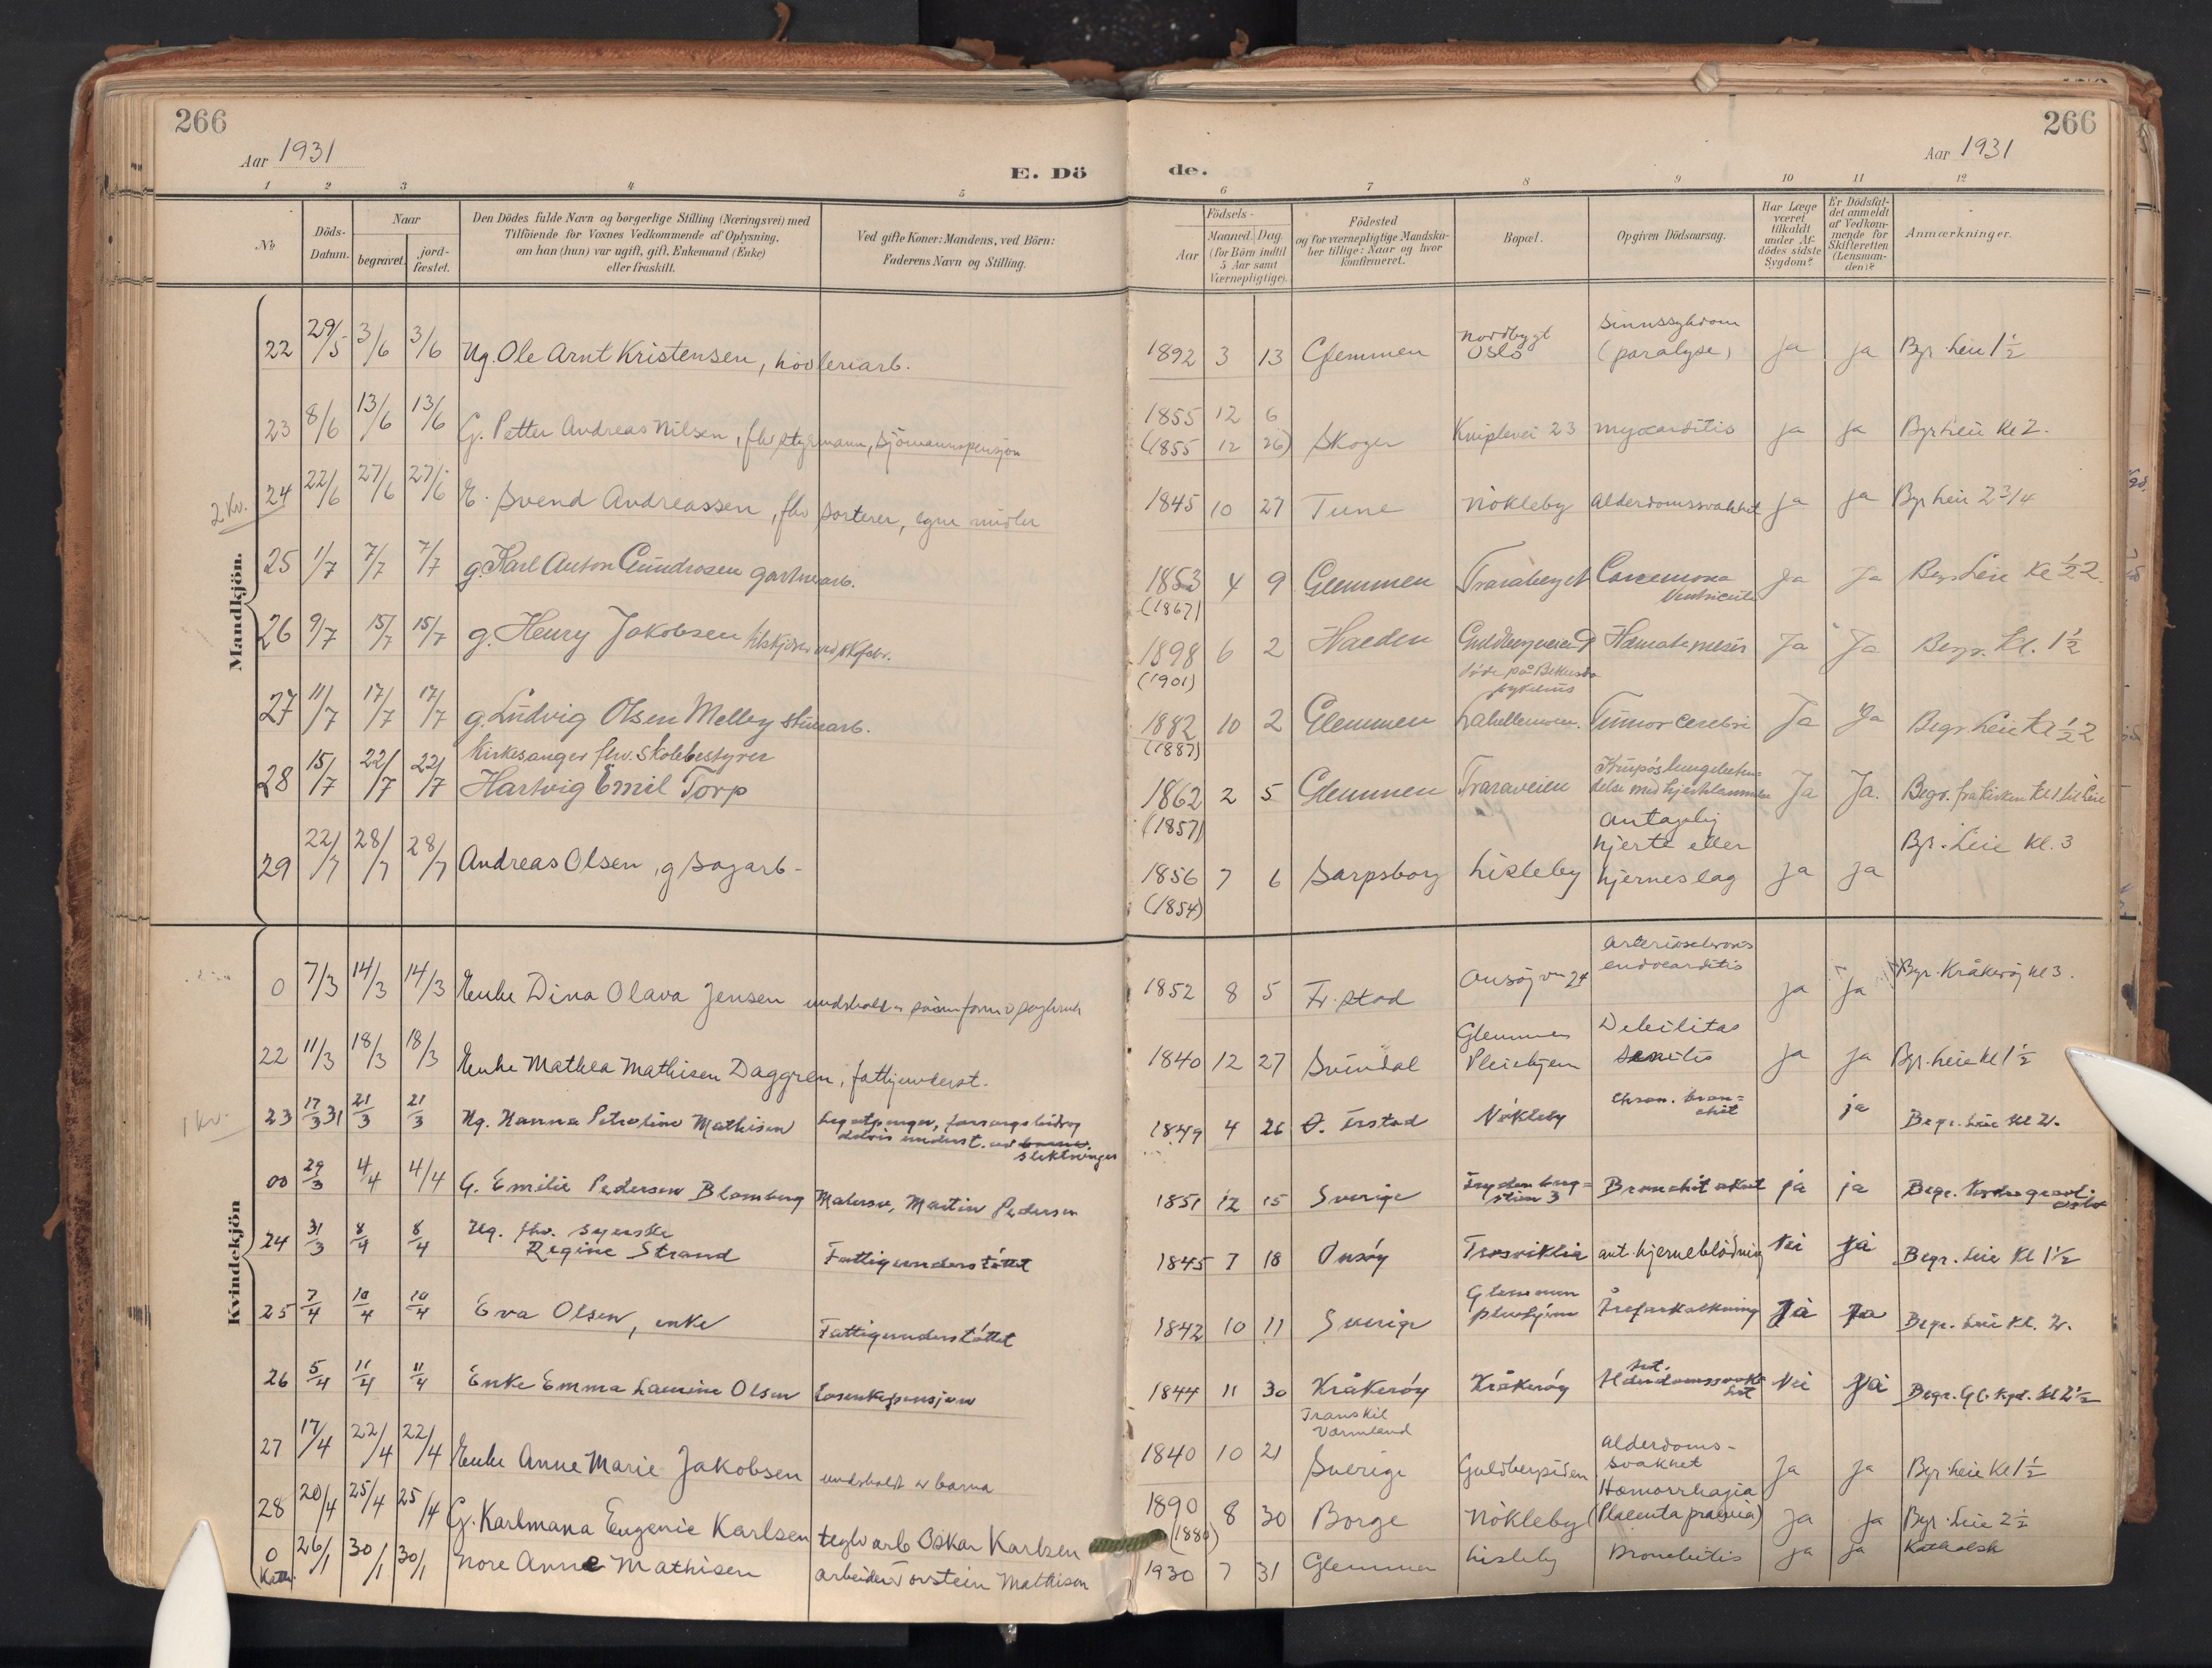 266
266
Aar 1931
Aar 1931
E. Dö
de.
1 2 3 4 5 6 7 8 9 10 11 12
No
Döds-
Datum.
Naar
begravet.
jord-
fæstet.
Den Dödes fulde Navn og borgerlige Stilling (Næringsvei) med
Tilföiende for Voxnes Vedkommende af Oplysning,
om han (hun) var ugift, gift, Enkemand (Enke)
eller fraskilt.
Ved gifte Koner: Mandens, ved Börn:
Faderens Navn og Stilling.
Födsels-
Aar
Maaned. Dag.
(for Börn indtil
5 Aar samt
Værnepligtige).
Födested
og for værnepligtige Mandska-
ber tillige: Naar og hvor
konfirmeret.
Bopæl.
Opgiven Dödsaarsag.
Har Læge
været
tilkaldt
under Af-
dödes sidste
Sygdom?
Er Dödsfal-
det anmeldt
af Vedkom-
mende for
Skifteretten
(Lensman-
den)?
Anmærkninger.
Mandkjön.
22 29/5 3/6 3/6 Ug. Ole Arnt Kristensen, høvleriarb. 1892 3 13 Glemmen Nordbygt Oslo Sinnssykdom (paralyse) Ja Ja Bgr. Leie 1½
23 8/6 13/6 13/6 G. Petter Andreas Nilsen, fhv styrmann, sjömannspensjon 1855 12 6 (1855 12 26) Skoger Kniplevei 23 myocarditis ja ja Bgr Leie kl 2.
2 kv.
24 22/6 27/6 27/6 E. Svend Andreassen, fhv sorterer, egne midler 1845 10 27 Tune Nökleby Alderdomssvakhet ja ja Bgr Leie 2 3/4
25 1/7 7/7 7/7 g. Karl Anton Gundrosen gartnerarb. 1853 (1867) 4 9 Glemmen Traraberget Ja Ja Begr Leie Kl ½2.
26 9/7 15/7 15/7 g. Henry Jakobsen 1898 (1901) 6 2 Hæmatemesis Ja Ja Begr. Kl. 1½
27 11/7 17/7 17/7 g. Ludvig Olsen Melby stenarb. 1882 (1887) 10 2 Glemmen Tumor cerebri Ja Ja Begr. Leie Kl ½2
28 15/7 22/7 22/7 Kirkesanger fhv. Skolebestyrer
Hartvig Emil Torp 1862 (1857) 2 5 Glemmen Traraveien Ja Ja. Begr. fra kirken Kl 1 til Leie
29 22/7 28/7 28/7 Andreas Olsen, g sagarb- 1856 (1854) 7 6 Sarpsborg Lisleby antagelig hjerte eller hjerneslag ja ja Bgr. Leie kl. 3
Kvindekjön
0 7/3 14/3 14/3 Enke Dina Olava Jensen 1852 8 5 Fr.stad Onsöyvn 24 Arteriosclerosis endocarditis ja Ja Bgr. Kråkeröy kl 3.
22 11/3 18/3 18/3 Enke Mathea Mathisen Daggren, fattigunderst. 1840 12 27 Svindal Glemmen Pleiehjem Debilitas senilis ja ja Bgr. Leie kl 1½
1 kv.
23 17/3 31 21/3 21/3 Ug. Hanna Petroline Mathisen Legatpenger, forsorgsbidrag delvis underst. av slektninger 1849 4 26 Ö. Frstad Nökleby Chron. bronchit ja Begr. Leie kl 2.
00 29/3 4/4 4/4 G. Emilie Pedersen Blomberg Malersv, Martin Pedersen 1851 12 15 Sverige Frydenbergstien 3 Bronchit akut ja ja Begr. Oslo
24 31/3 8/4 8/4 Ug. fhv. syerske
Regine Strand Fattigunderstöttet 1845 7 18 Onsöy Trosviklia ant. hjerneblödning Nei Ja Begr. Leie Kl 1½
25 7/4 10/4 10/4 Eva Olsen, enke Fattigunderstöttet 1842 10 11 Sverige Glemmen pleiehjem Åreforkalkning Ja Ja Begr. Leie Kl. 2.
26 5/4 11/4 11/4 Enke Emma Laurine Olsen Losenkepensjon 1844 11 30 Kråkeröy Kråkeröy ant. Alderdomssvakhet Nei Ja Begr. Gl. Kgd. Kl 2½
27 17/4 22/4 22/4 Enke Anne Marie Jakobsen undsholdt av barna 1840 10 21 Transkil Värmland Sverige Guldbergsiden alderdomssvakhet Ja ja Bgr. Leie Kl 1½
28 20/4 25/4 25/4 G. Karlmana Eugenie Karlsen teglv arb Oskar Karlsen 1890 (1880) 8 30 Borge Nökleby Hæmorrhagia (Placenta prævia) ja ja Bgr. Leie 2½
0 Kath. 26/1 30/1 30/1 Nore Anne Mathisen arbeider Torstein Mathisen 1930 7 31 Glemmen Lisleby Bronchitis ja ja Katholsk